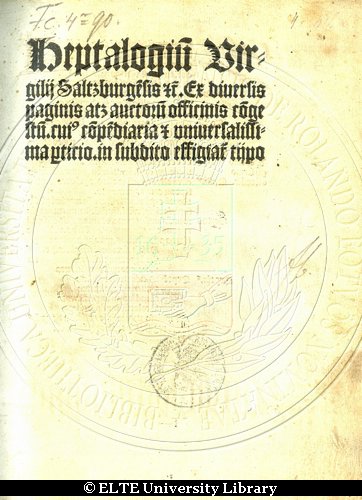 Fc. 4290.
Heptalogiū Vir-
gilij Saltzburgēsis ꝛc̄. Ex diuersis
paginis atqꝫ auctorū officinis cōge
stū. cuiꝰ cōpēdiaria ⁊ vniuersalissi-
ma ꝑticio. in subdito effigiat̄ tijpo
BIBLIOTHECA UNIVERSITATIS DE ROLANDO EÖTVÖS NOMINATAE
© ELTE University Library